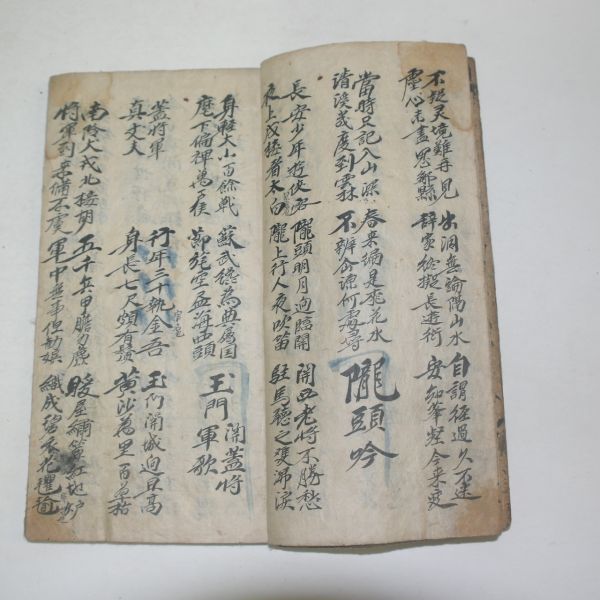 不疑灵境難再見
塵心未盡思鄉縣
出洞無論隔山水
辞家終擬長遊衍
自謂経過久不迷
安知峯壑今来变
當時只記入山深
清溪幾度到雲林
春来編是桃花水
不辨仙源何處尋
隴頭吟
長安少年遊俠客
夜上戍樓看太白
隴頭明月迥臨關
隴上行人夜吹笛
關西老将不勝愁
駐馬聽之雙涕淚
身経大小百餘戰
麾下偏裨萬戶侯
蘇武纔為典属国
節旄空盡海西頭
玉門關蓋將軍歌
蓋將軍
真丈夫
行年三十執金吾
身長七尺頗有鬚
玉門關城迥且高
黃沙萬里百草枯
南隣犬戎北接胡
將軍到来備不虞
五千兵甲膽力麁
軍中無事但歡娛
暖屋繡簾紅地炉
織成壁衣花氍毹